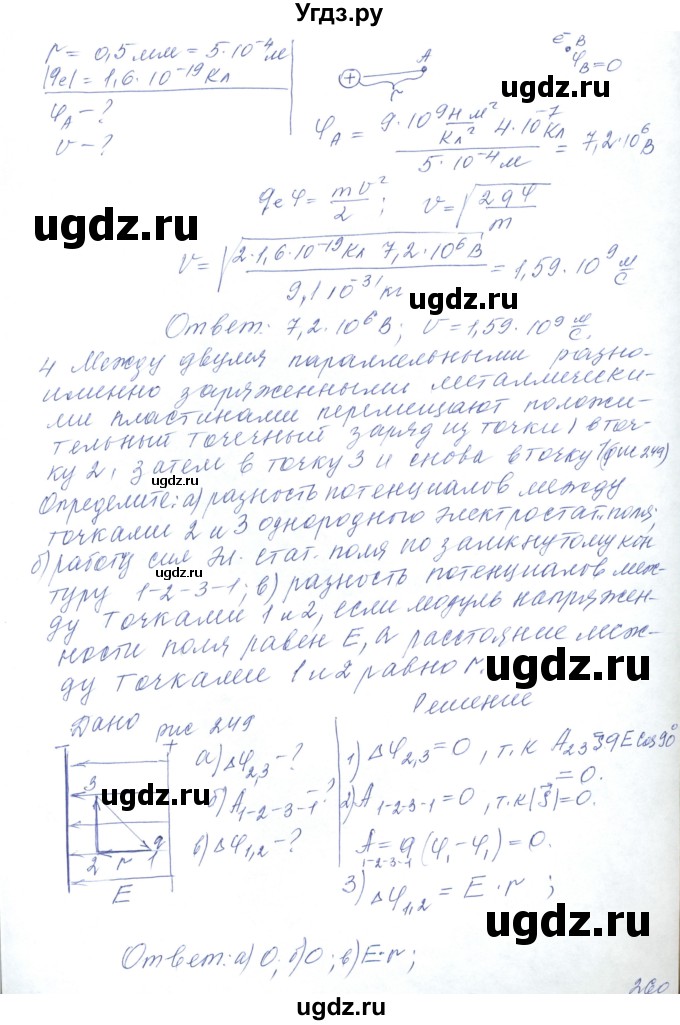 Угдз.ру
r = 0,5 мм = 5·10⁻⁴ м
|qe| = 1,6·10⁻¹⁹ Кл
φA – ?
v – ?
A
r
ē B
φB = 0
φA = 9·10⁹ Н м²/Кл² 4·10⁻⁷ Кл / 5·10⁻⁴ м = 7,2·10⁶ В
qe φ = mv²/2 ; v = √(2qφ/m)
ugdz.ru ugdz.ru
v = √(2·1,6·10⁻¹⁹ Кл 7,2·10⁶ В / 9,1 10⁻³¹ кг) = 1,59·10⁹ м/с
ugdz.ru
Ответ: 7,2·10⁶ В; v = 1,59·10⁹ м/с.
4 Между двумя параллельными разно-
именно заряженными металлически-
ми пластинами перемещают положи-
тельный точечный заряд из точки 1 в точ-
ку 2, затем в точку 3 и снова в точку 1 (рис 249)
ugdz.ru
Определите: а) разность потенциалов между
точками 2 и 3 однородного электростат. поля;
б) работу сил эл. стат. поля по замкнутому кон
ugdz.ru
туру 1-2-3-1; в) разность потенциалов меж-
ду точками 1 и 2, если модуль напряжен-
ности поля равен E, а расстояние меж-
ду точками 1 и 2 равно r.
ugdz.ru
Дано рис 249
Решение
а) Δφ2,3 – ?
1) Δφ2,3 = 0, т.к A23 = qE cos 90°
= 0.
ugdz.ru
б) A1-2-3-1 – ?
2) A1-2-3-1 = 0, т.к |S⃗| = 0.
в) Δφ1,2 – ?
A1-2-3-1 = q(φ1 – φ1) = 0.
3) Δφ1,2 = E·r ;
3
2 r 1 q
E
+
ugdz.ru
Ответ: а) 0; б) 0; в) E·r;
ugdz.ru
260
ugdz.ru